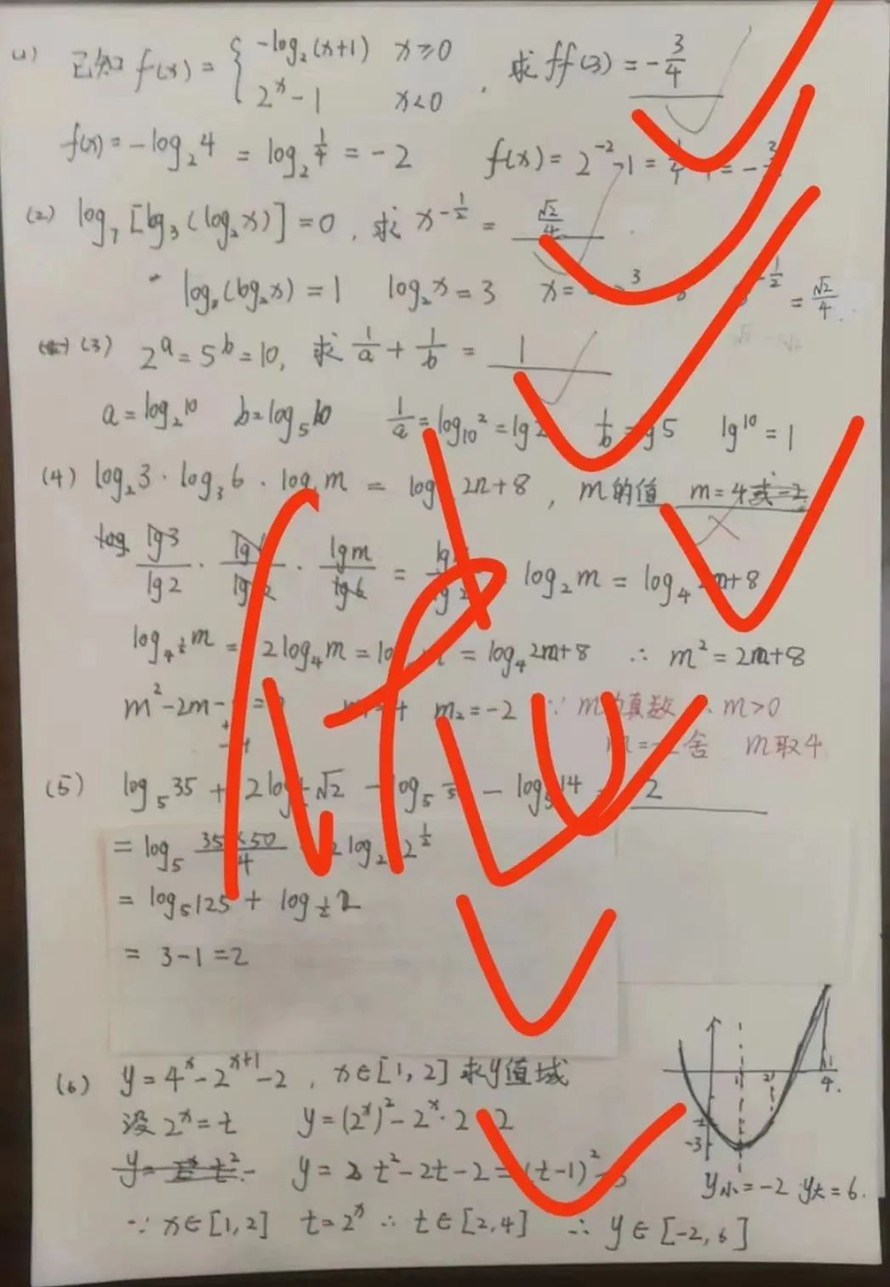 (1) 已知 f(x) = { -log₂(x+1) x≥0
2ˣ-1 x<0 , 求 ff(3) = -3/4
f(x) = -log₂4 = log₂ 1/4 = -2 f(x) = 2⁻²-1 =
(2) log₇[log₃(log₂x)] = 0, 求 x^(-1/2) = √2/4
log₃(log₂x) = 1 log₂x = 3 x = = √2/4
(3) 2ᵃ = 5ᵇ = 10, 求 1/a + 1/b = 1
a = log₂10 b = log₅10 1/a = log₁₀2 = lg 1/b = g5 lg10 = 1
(4) log₂3 · log₃6 · log m = log 2m+8, m的值 m=4
lg3/lg2 · · lgm/lg6 = log₂m = log₄ m+8
= 2log₄m = = log₄2m+8 ∴ m² = 2m+8
m²-2m- m₂ = -2 ∵ m 真数 ∴ m>0
舍 m取4
(5) log₅35 + 2log √2 - log₅ - log 14 2
= log₅ 35×50/4 2log 2^(1/2)
= log₅125 + log_(1/2) 2
= 3-1 = 2
(6) y = 4ˣ-2ˣ⁺¹-2, x∈[1,2] 求y值域
设 2ˣ = t y = (2ˣ)²-2ˣ·2 2
y = t²-2t-2 = (t-1)²
1 2 4
-2
-3
y小=-2 y大=6.
∵ x∈[1,2] t=2ˣ ∴ t∈[2,4] ∴ y∈[-2,6]